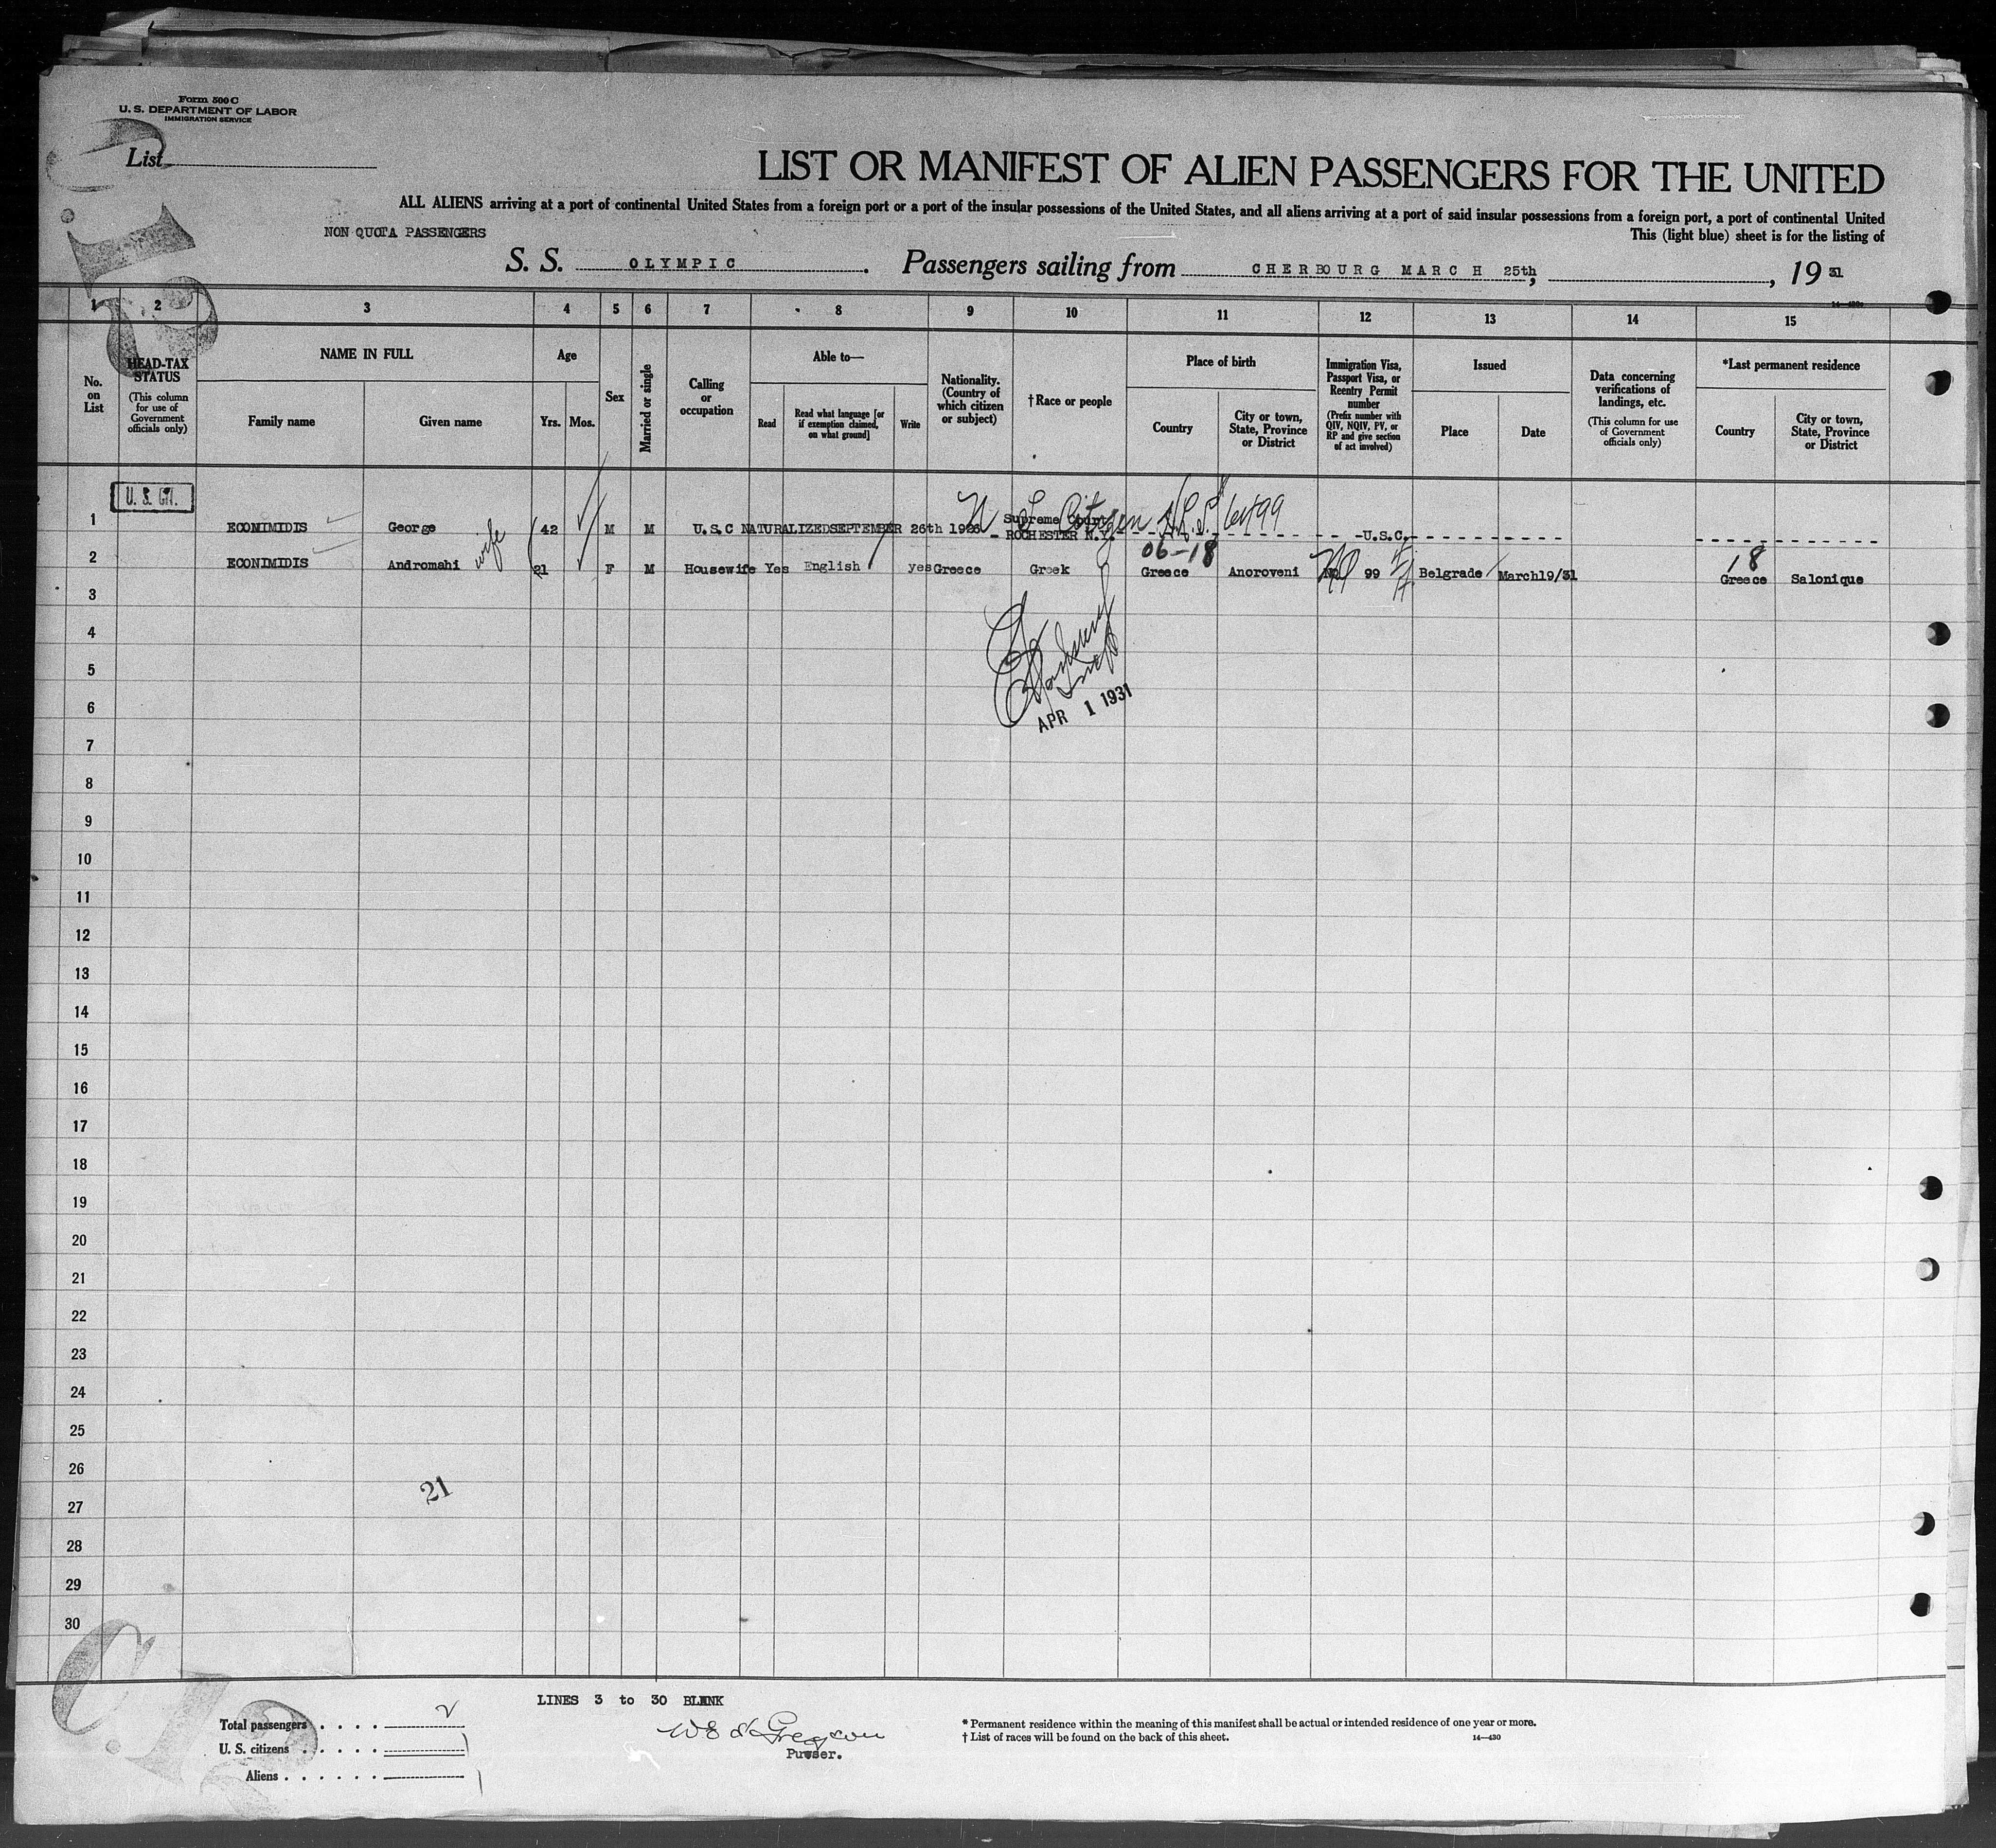 Form 500 C
U. S. DEPARTMENT OF LABOR
IMMIGRATION SERVICE
List
LIST OR MANIFEST OF ALIEN PASSENGERS FOR THE UNITED
ALL ALIENS arriving at a port of continental United States from a foreign port or a port of the insular possessions of the United States, and all aliens arriving at a port of said insular possessions from a foreign port, a port of continental United
NON QUOTA PASSENGERS
This (light blue) sheet is for the listing of
S. S. OLYMPIC. Passengers sailing from CHERBOURG MARCH 25th, , 19 31
1 2 3 4 5 6 7 8 9 10 11 12 13 14 15
No. on List
HEAD-TAX STATUS
(This column for use of Government officials only)
NAME IN FULL
Family name
Given name
Age
Yrs.
Mos.
Sex
Married or single
Calling or occupation
Able to—
Read
Read what language [or if exemption claimed, on what ground]
Write
Nationality. (Country of which citizen or subject)
† Race or people
Place of birth
Country
City or town, State, Province or District
Immigration Visa, Passport Visa, or Reentry Permit number
(Prefix number with QIV, NQIV, PV, or RP and give section of act involved)
Issued
Place
Date
Data concerning verifications of landings, etc.
(This column for use of Government officials only)
*Last permanent residence
Country
City or town, State, Province or District
1 ECONIMIDIS George 42 M M U.S.C NATURALIZED SEPTEMBER 26th 1926 Supreme Court
ROCHESTER N.Y. U.S.C.
Citizen
06-18
18
2 ECONIMIDIS Andromahi wife 21 F M Housewife Yes English yes Greece Greek Greece Anoroveni 99 Belgrade March19/31 Greece Salonique
3
4
5
6
APR 1 1931
7
8
9
10
11
12
13
14
15
16
17
18
19
20
21
22
23
24
25
26
21
27
28
29
30
LINES 3 to 30 BLANK
Total passengers . . . . 2
U. S. citizens . . . . . 1
Aliens . . . . . . 1
Purser.
* Permanent residence within the meaning of this manifest shall be actual or intended residence of one year or more.
† List of races will be found on the back of this sheet.
14—430